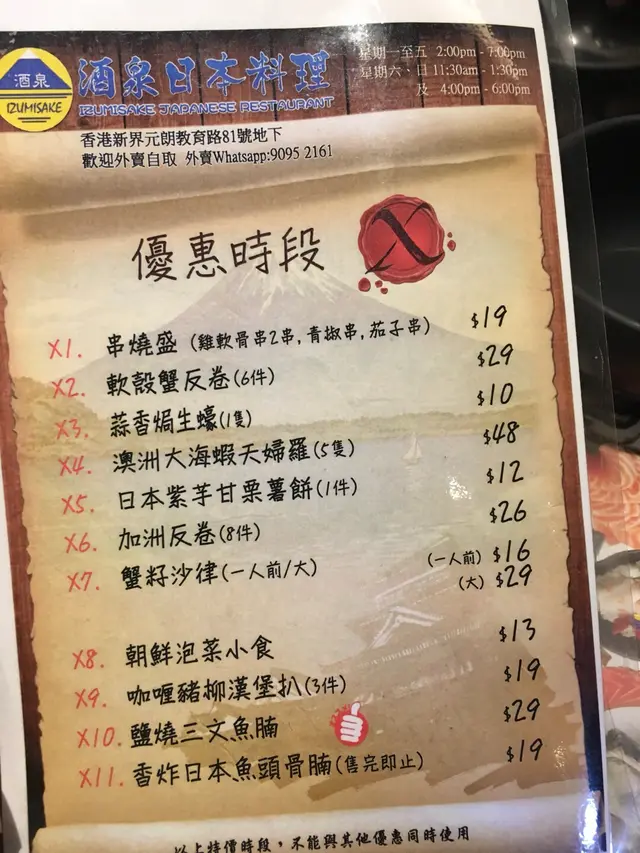 酒泉
IZUMISAKE
酒泉日本料理
IZUMISAKE JAPANESE RESTAURANT
星期一至五 2:00pm - 7:00pm
星期六、日 11:30am - 1:30pm
及 4:00pm - 6:00pm
香港新界元朗教育路81號地下
歡迎外賣自取 外賣Whatsapp:9095 2161
優惠時段 X
X1. 串燒盛 (雞軟骨串2串,青椒串,茄子串) $19
X2. 軟殼蟹反卷(6件) $29
X3. 蒜香焗生蠔(1隻) $10
X4. 澳洲大海蝦天婦羅(5隻) $48
X5. 日本紫芋甘栗薯餅(1件) $12
X6. 加洲反卷(8件) $26
X7. 蟹籽沙律(一人前/大) (一人前) $16
(大) $29
X8. 朝鮮泡菜小食 $13
X9. 咖喱豬柳漢堡扒(3件) $19
X10. 鹽燒三文魚腩 $29
X11. 香炸日本魚頭骨腩(售完即止) $19
以上特價時段，不能與其他優惠同時使用